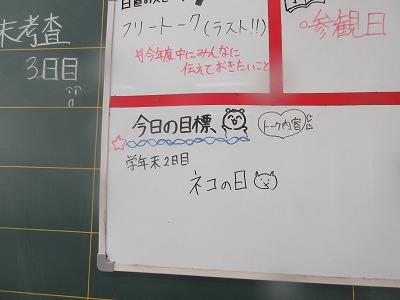 末考査
3日目
フリートーク(ラスト!!)
今年度中にみんなに
伝えておきたいこと
参観日
今日の目標、
トーク内容
学年末2日目
ネコの日